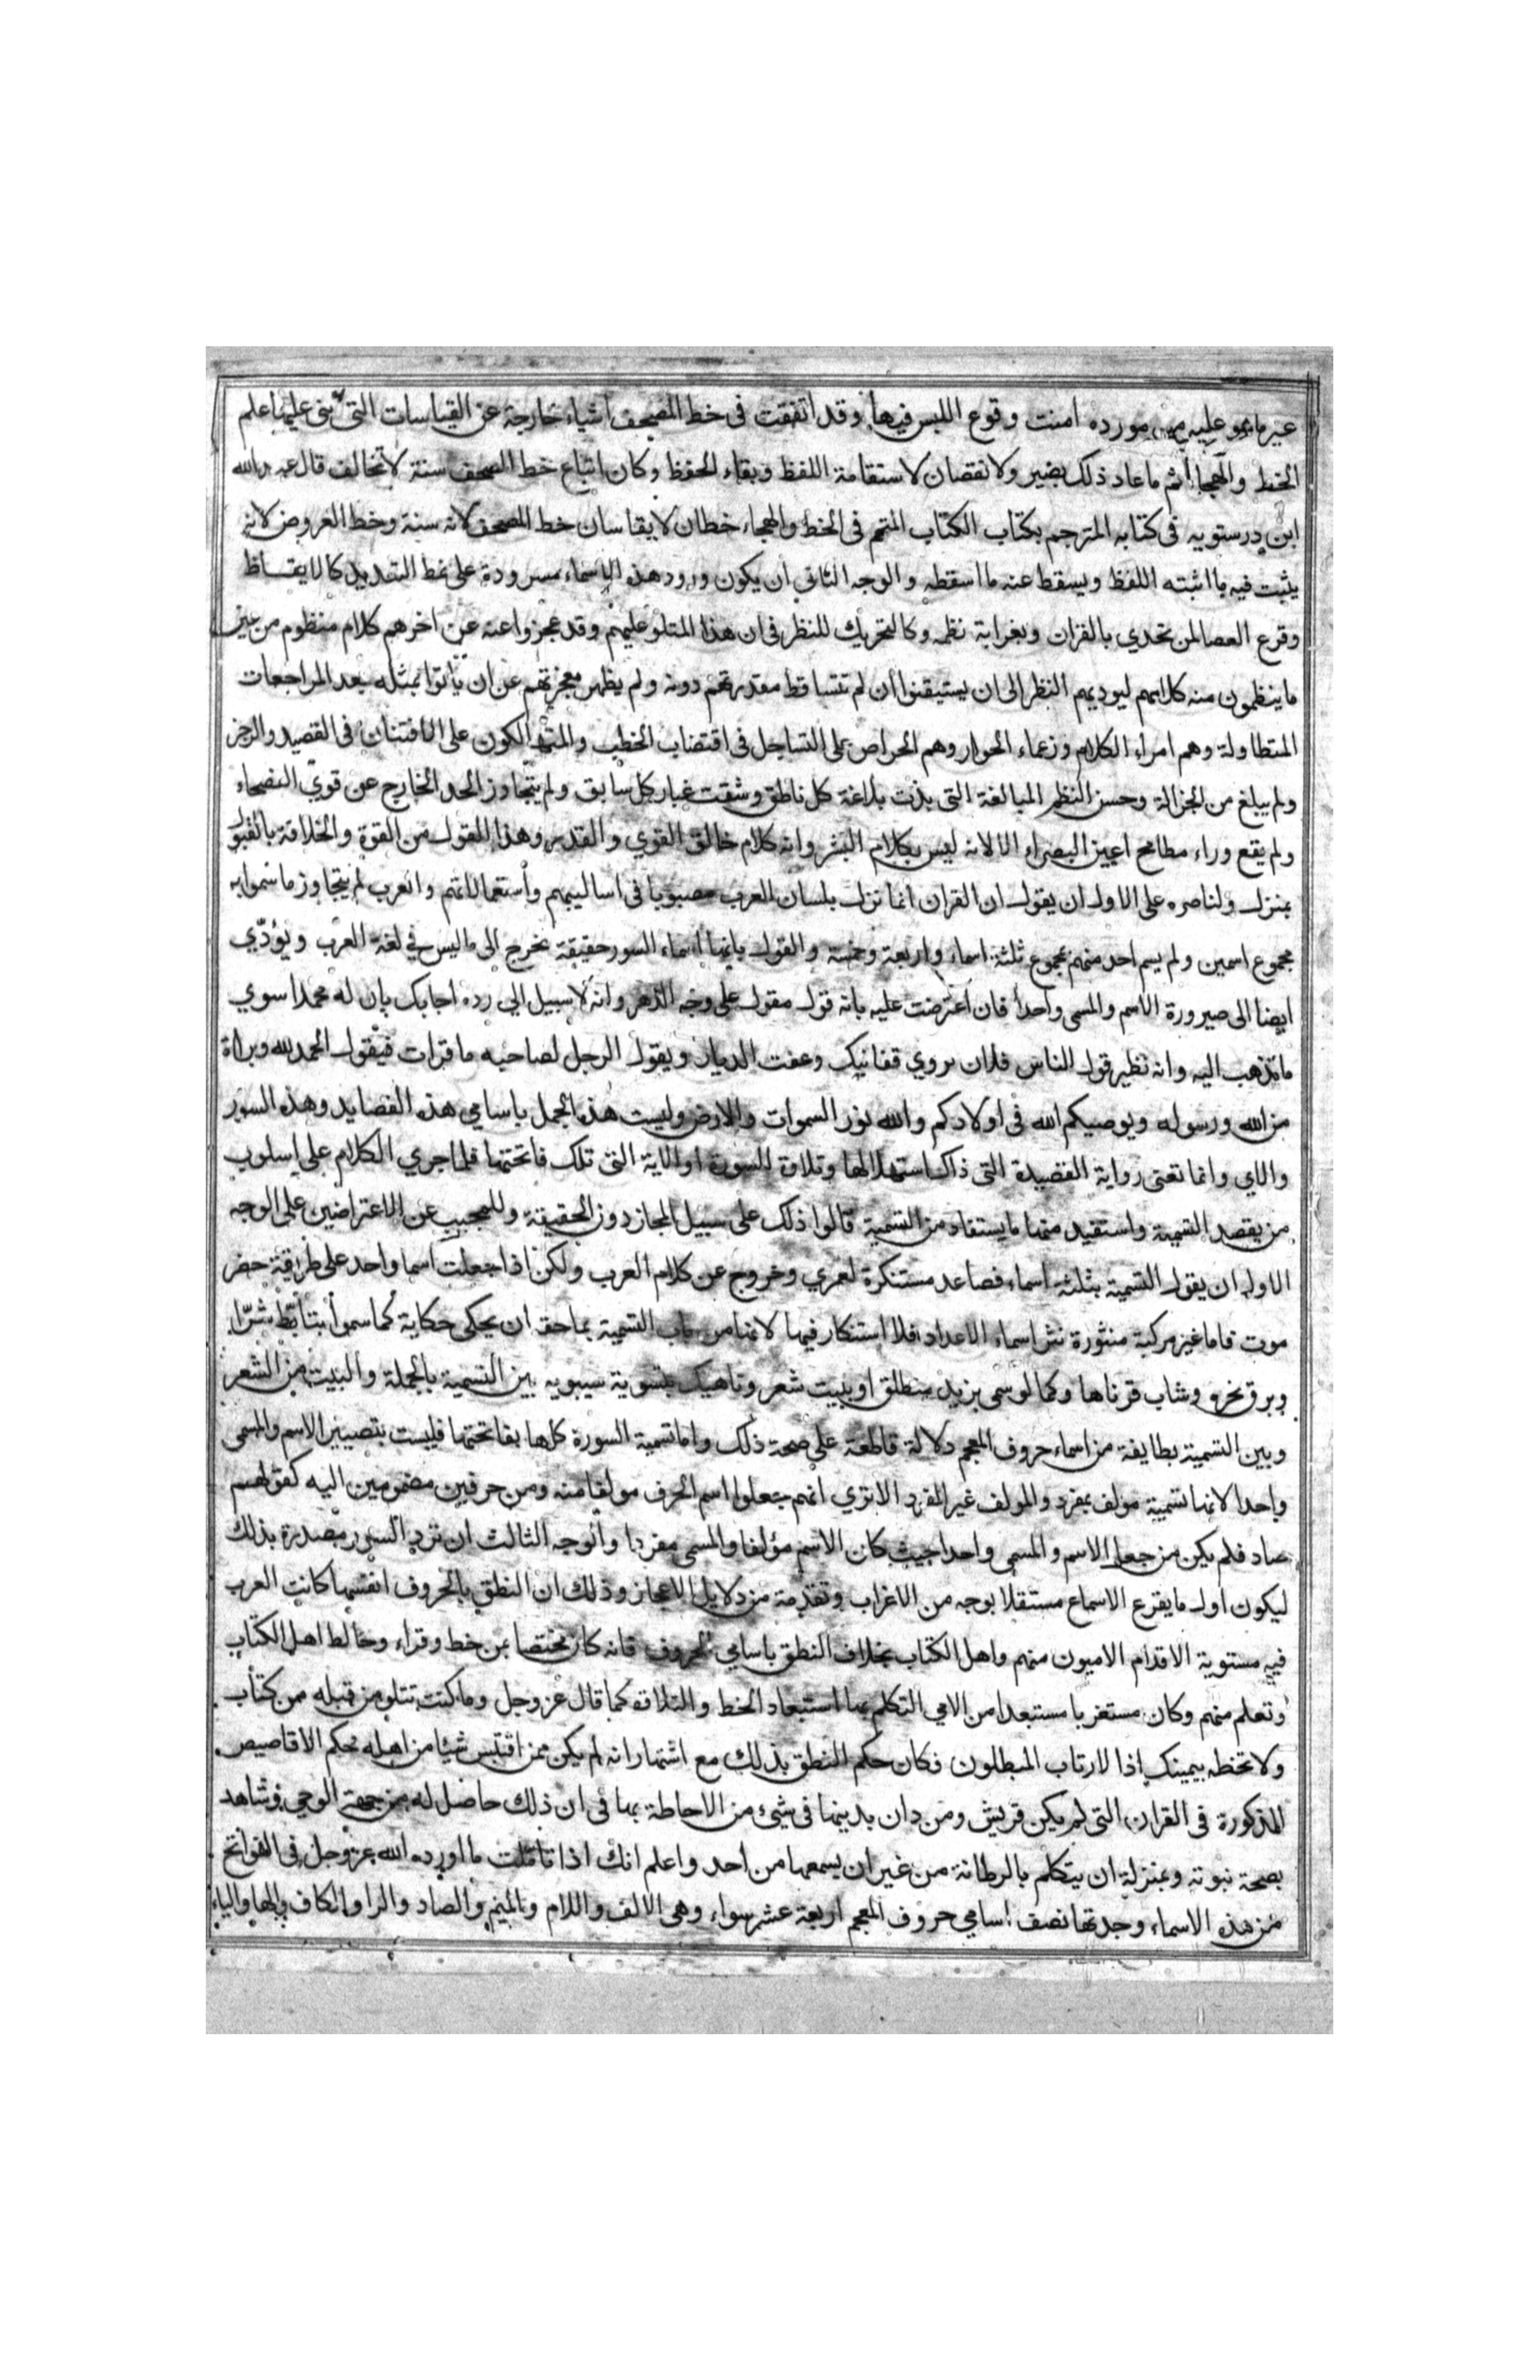 غير ما هو عليه من مورده امنت وقوع اللبس فيها وقد اتفقت فى خط المصحف اشياء خارجة عن القياسات التى بنى عليها علم
الخط والهجاء ثم ما عاد ذلك بضير ولا نقصان لاستقامة اللفظ وبقاء الحفظ وكان اتباع خط المصحف سنة لا تخالف قال عبد الله
ابن درستويه فى كتابه المترجم بكتاب الكتاب المتمم فى الخط والهجاء خطان لا يقاسان خط المصحف لانه سنة وخط العروض لانه
يثبت فيه ما اثبته اللفظ ويسقط عنه ما اسقطه والوجه الثانى ان يكون ورود هذه الاسماء مسرودة على نمط التعديد كالايقاظ
وقرع العصا لمن تحدي بالقران وبغرابة نظمه وكالتحريك للنظر فى ان هذا المتلو عليهم وقد عجزوا عنه عن اخرهم كلام منظوم من عين
ما ينظمون منه كلامهم ليوديهم النظر الى ان يستيقنوا ان لم تتساقط مقدرتهم دونه ولم يظهر معجزتهم عن ان ياتوا بمثله بعد المراجعات
المتطاولة وهم امراء الكلام وزعماء الحوار وهم الحراص على التساجل فى اقتضاب الخطب والمتهالكون على الافتنان فى القصيد والرجز
ولم يبلغ من الجزالة وحسن النظم المبالغة التى بذت بلاغة كل ناطق وشقت غبار كل سابق ولم يتجاوز الحد الخارج عن قوي الفصحاء
ولم يقع وراء مطامح اعين البصراء الا لانه ليس بكلام البشر وانه كلام خالق القوي والقدر وهذا القول من القوة والخلاقة بالقبول
بمنزل ولناصره على الاول ان يقول ان القران انما نزل بلسان العرب مصبوبا فى اساليبهم واستعمالاتهم والعرب لم يتجاوز ما سموا به
مجموع اسمين ولم يسم احد منهم بمجموع ثلثة اسماء واربعة وخمسة والقول بانها اسماء السور حقيقة تخرج الى ما ليس فى لغة العرب ويؤدّي
ايضا الى صيرورة الاسم والمسمى واحدا فان اعترضت عليه بانه قول مقول على وجه الدهر وانه لا سبيل الى رده اجابك بان له محملا سوي
ما تذهب اليه وانه نظير قول الناس فلان يروي قفا نبك وعفت الديار ويقول الرجل لصاحبه ما قرات فيقول الحمد لله وبراة
من الله ورسوله ويوصيكم الله فى اولادكم والله نور السموات والارض وليست هذه الجمل باسامي هذه القصايد وهذه السور
والاي وانما تعنى رواية القصيدة التى ذاك استهلالها وتلاوة السورة او الاية التى تلك فاتحتها فلما جري الكلام على اسلوب
من يقصد التسمية واستفيد منها ما يستفاد من التسمية قالوا ذلك على سبيل المجاز دون الحقيقة وللمجيب عن الاعتراضين على الوجه
الاول ان يقول التسمية بثلثة اسماء فصاعد مستنكرة لعمري وخروج عن كلام العرب ولكن اذا جعلت اسما واحد على طريقة حضر
موت فاما غير مركبة منثورة نثر اسماء الاعداد فلا استنكار فيها لانها من باب التسمية بما حقه ان يحكى حكاية كما سموا بتابّط شرّا
وبرق نحره وشاب قرناها وكما لو سمى بزيد منطلق او ببيت شعر وناهيك بتسوية سيبويه بين التسمية بالجملة والبيت من الشعر
وبين التسمية بطايفة من اسماء حروف المعجم دلالة قاطعة على صحة ذلك واما تسمية السورة كلها بفاتحتها فليست بتصيير الاسم والمسمى
واحدا لانها تسمية مؤلف بمفرد والمولف غير المفرد الا تري انهم جعلوا اسم الحرف مولفا منه ومن حرفين مضمومين اليه كقولهم
صاد فلم يكن من جعل الاسم والمسمى واحدا حيث كان الاسم مؤلفا والمسمى مفردا والوجه الثالث ان ترد السور مصدرة بذلك
ليكون اول ما يقرع الاسماع مستقلا بوجه من الاغراب وتقدمة من دلايل الاعجاز وذلك ان النطق بالحروف انفسها كانت العرب
فيه مستوية الاقدام الاميون منهم واهل الكتاب بخلاف النطق باسامي الحروف فانه كان مختصا بمن خط وقراء وخالط اهل الكتاب
وتعلم منهم وكان مستغربا مستبعدا من الامي التكلم بها استبعاد الخط والتلاوه كما قال عز وجل وما كنت تتلو من قبله من كتاب
ولا تخطه بيمينك اذا لارتاب المبطلون فكان حكم النطق بذلك مع اشتهار انه لم يكن ممن اقتبس شيئا من اهله حكم الاقاصيص
المذكورة فى القران التى لم يكن قريش ومن دان بدينها فى شىء من الاحاطة بها فى ان ذلك حاصل له من جهة الوحي وشاهد
بصحة نبوته وبمنزلة ان يتكلم بالرطانة من غير ان يسمعها من احد واعلم انك اذا تاملت ما اورده الله عز وجل فى الفواتح
من هذه الاسماء وجدتها نصف اسامي حروف المعجم اربعة عشر سواء وهى الالف واللام والميم والصاد والرا والكاف والها والياء